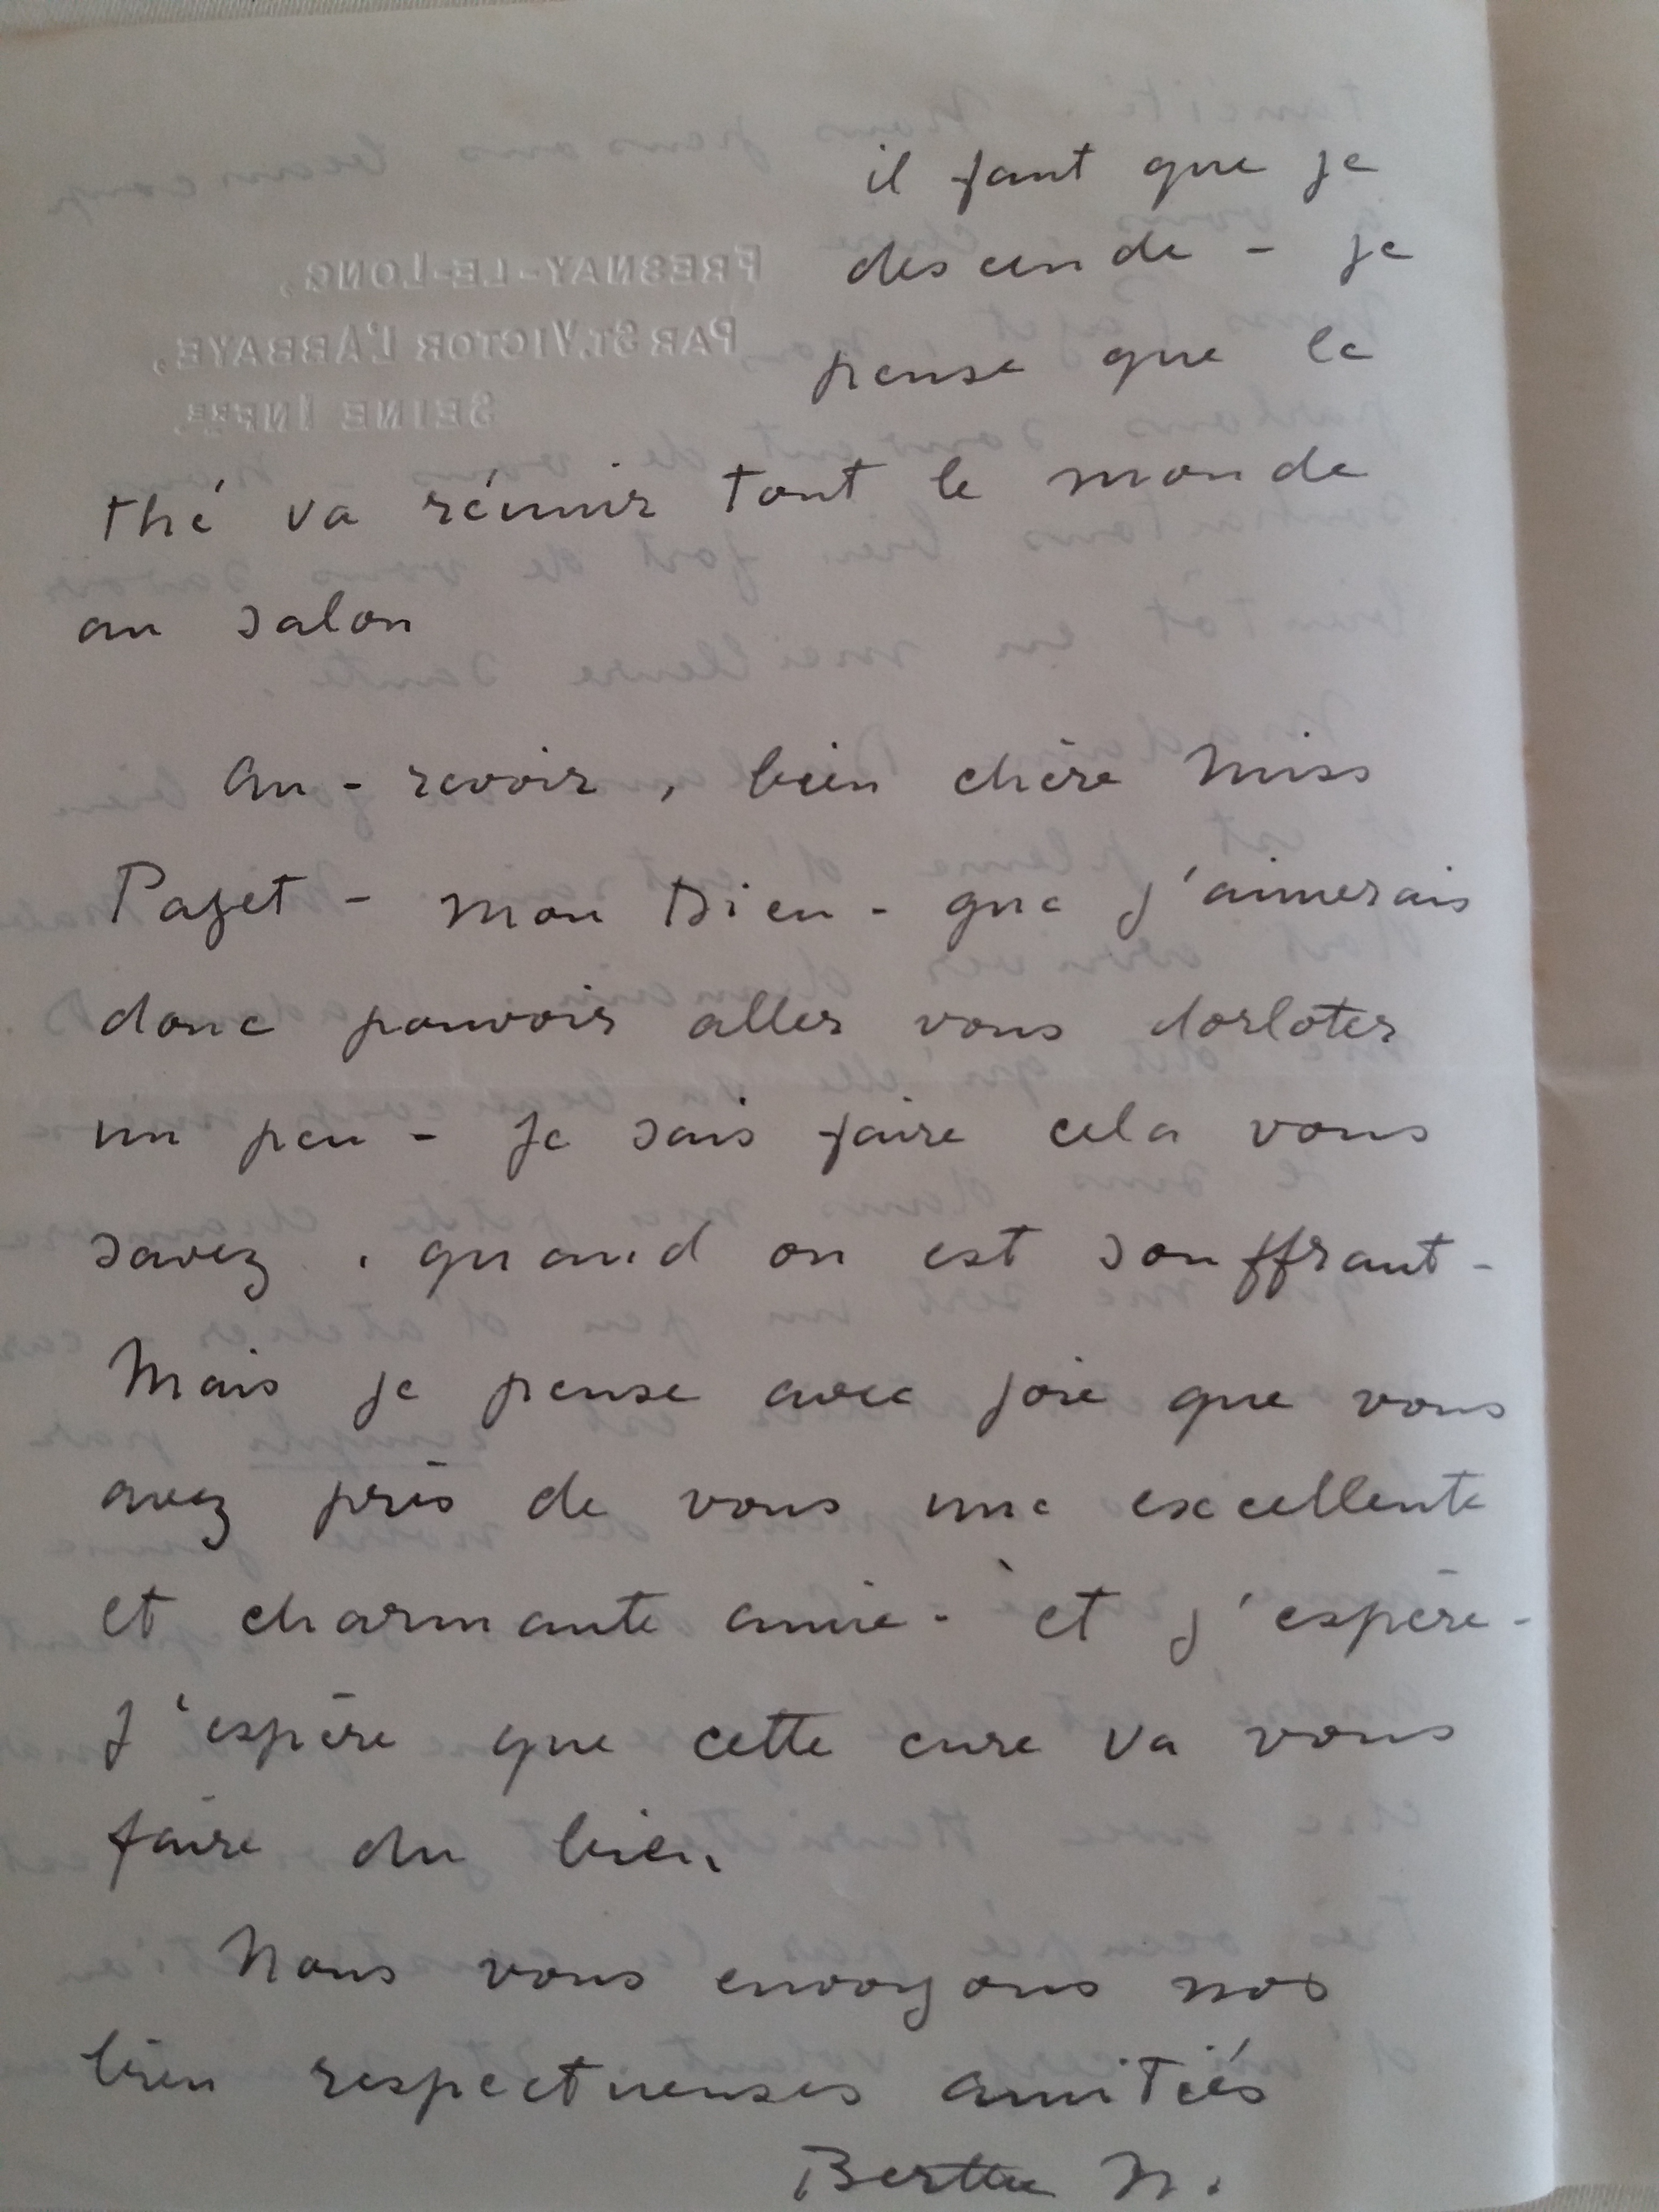 il faut que je
descende - je
pense que le
FRESNAY-LE-LONG,
PAR ST. VICTOR L'ABBAYE,
SEINE INFRE.
thé va réunir tout le monde
au salon
Au-revoir, bien chère Miss
Paget - mon Dieu - que j'aimerais
donc pouvoir aller vous dorloter
un peu - je sais faire cela vous
savez. quand on est souffrant -
Mais je pense avec joie que vous
avez près de vous une excellente
et charmante amie - et j'espère -
j'espère que cette cure va vous
faire du bien.
Nous vous envoyons nos
bien respectueuses amitiés
Berthe N.